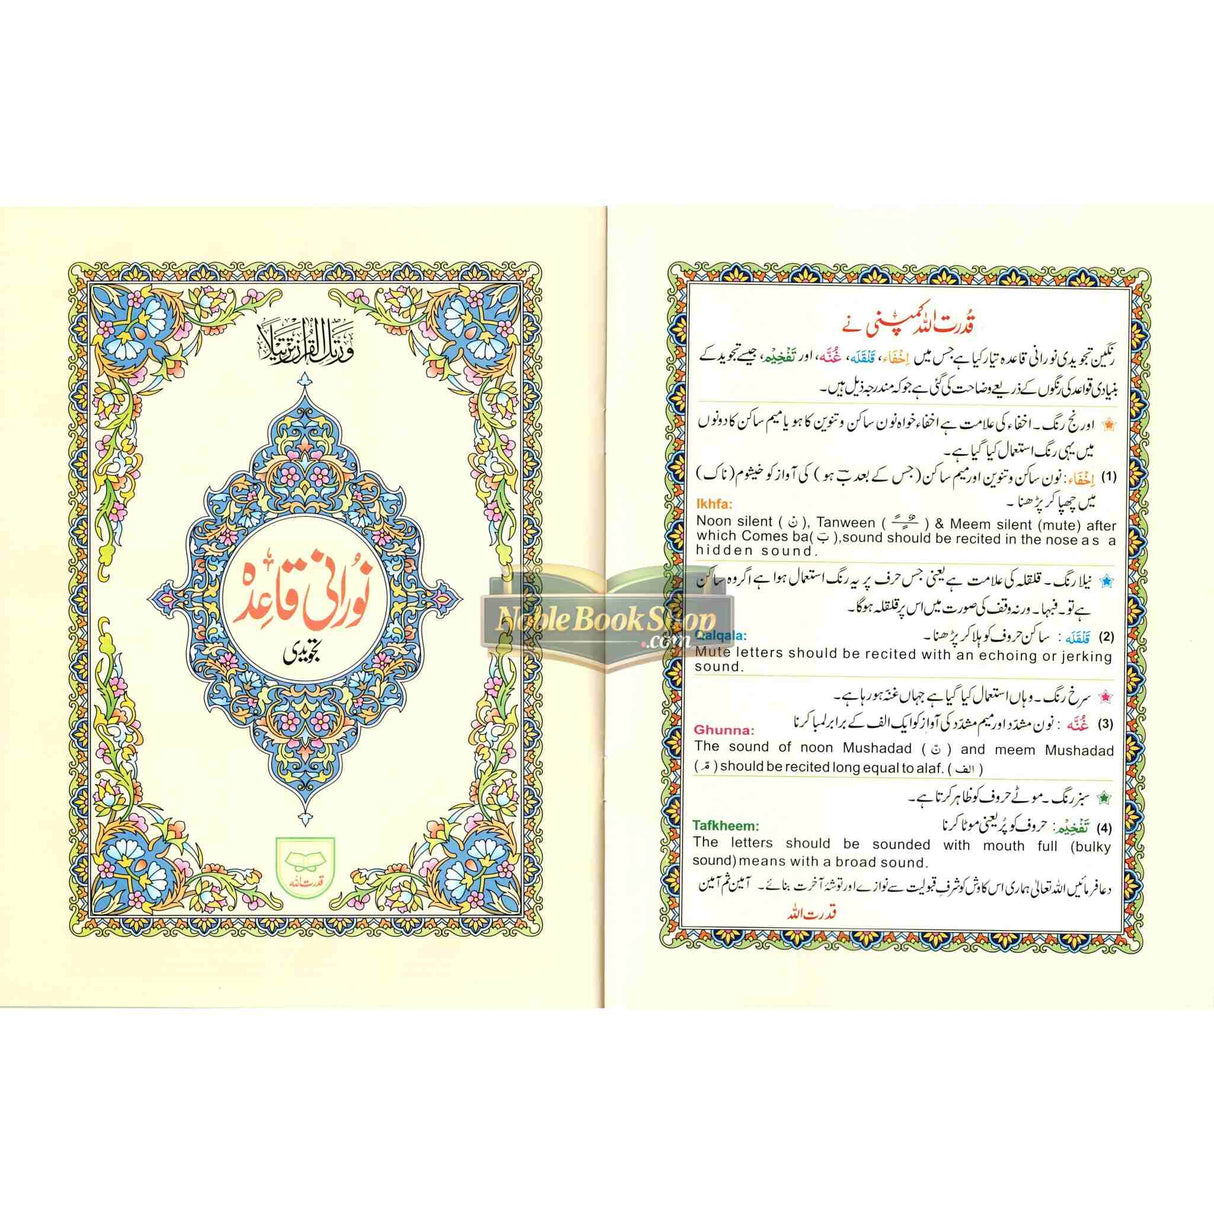 ورتل القرآن ترتيلا
نورانی قاعدہ
تجویدی
قدرت اللہ
قدرت اللہ کمپنی نے
رنگین تجویدی نورانی قاعدہ تیار کیا ہے جس میں اِخْفَاء، قَلْقَلَه، غُنَّه، اور تَفْخِیْم، جیسے تجوید کے
بنیادی قواعد کی رنگوں کے ذریعے وضاحت کی گئی ہے جو کہ مندرجہ ذیل ہیں۔
اورنج رنگ۔ اخفاء کی علامت ہے اخفاء خواہ نون ساکن و تنوین کا ہو یا میم ساکن کا دونوں
میں یہی رنگ استعمال کیا گیا ہے۔
(1) اِخْفَاء: نون ساکن و تنوین اور میم ساکن (جس کے بعد ب ہو) کی آواز کو خیشوم (ناک)
میں چھپا کر پڑھنا۔
Ikhfa:
Noon silent ( نْ ), Tanween ( ـًـٍـٌ ) & Meem silent (mute) after
which Comes ba( بَ ),sound should be recited in the nose as a
hidden sound.
نیلا رنگ۔ قلقلہ کی علامت ہے یعنی جس حرف پر یہ رنگ استعمال ہوا ہے اگر وہ ساکن
ہے تو۔ فبہا۔ ورنہ وقف کی صورت میں اس پر قلقلہ ہوگا۔
(2) قَلْقَلَه : ساکن حروف کو ہلا کر پڑھنا۔
Qalqala:
Mute letters should be recited with an echoing or jerking
sound.
سرخ رنگ۔ وہاں استعمال کیا گیا ہے جہاں غنّہ ہو رہا ہے۔
(3) غُنَّه : نون مشدّد اور میم مشدّد کی آواز کو ایک الف کے برابر لمبا کرنا
Ghunna:
The sound of noon Mushadad ( نّ ) and meem Mushadad
( مّ ) should be recited long equal to alaf. ( الف )
سبز رنگ۔ موٹے حروف کو ظاہر کرتا ہے۔
(4) تَفْخِیْم: حروف کو پُر یعنی موٹا کرنا
Tafkheem:
The letters should be sounded with mouth full (bulky
sound) means with a broad sound.
دعا فرمائیں اللہ تعالیٰ ہماری اس کاوش کو شرفِ قبولیت سے نوازے اور توشۂ آخرت بنائے۔ آمین ثم آمین
قدرت اللہ
Noble Book Shop
.com